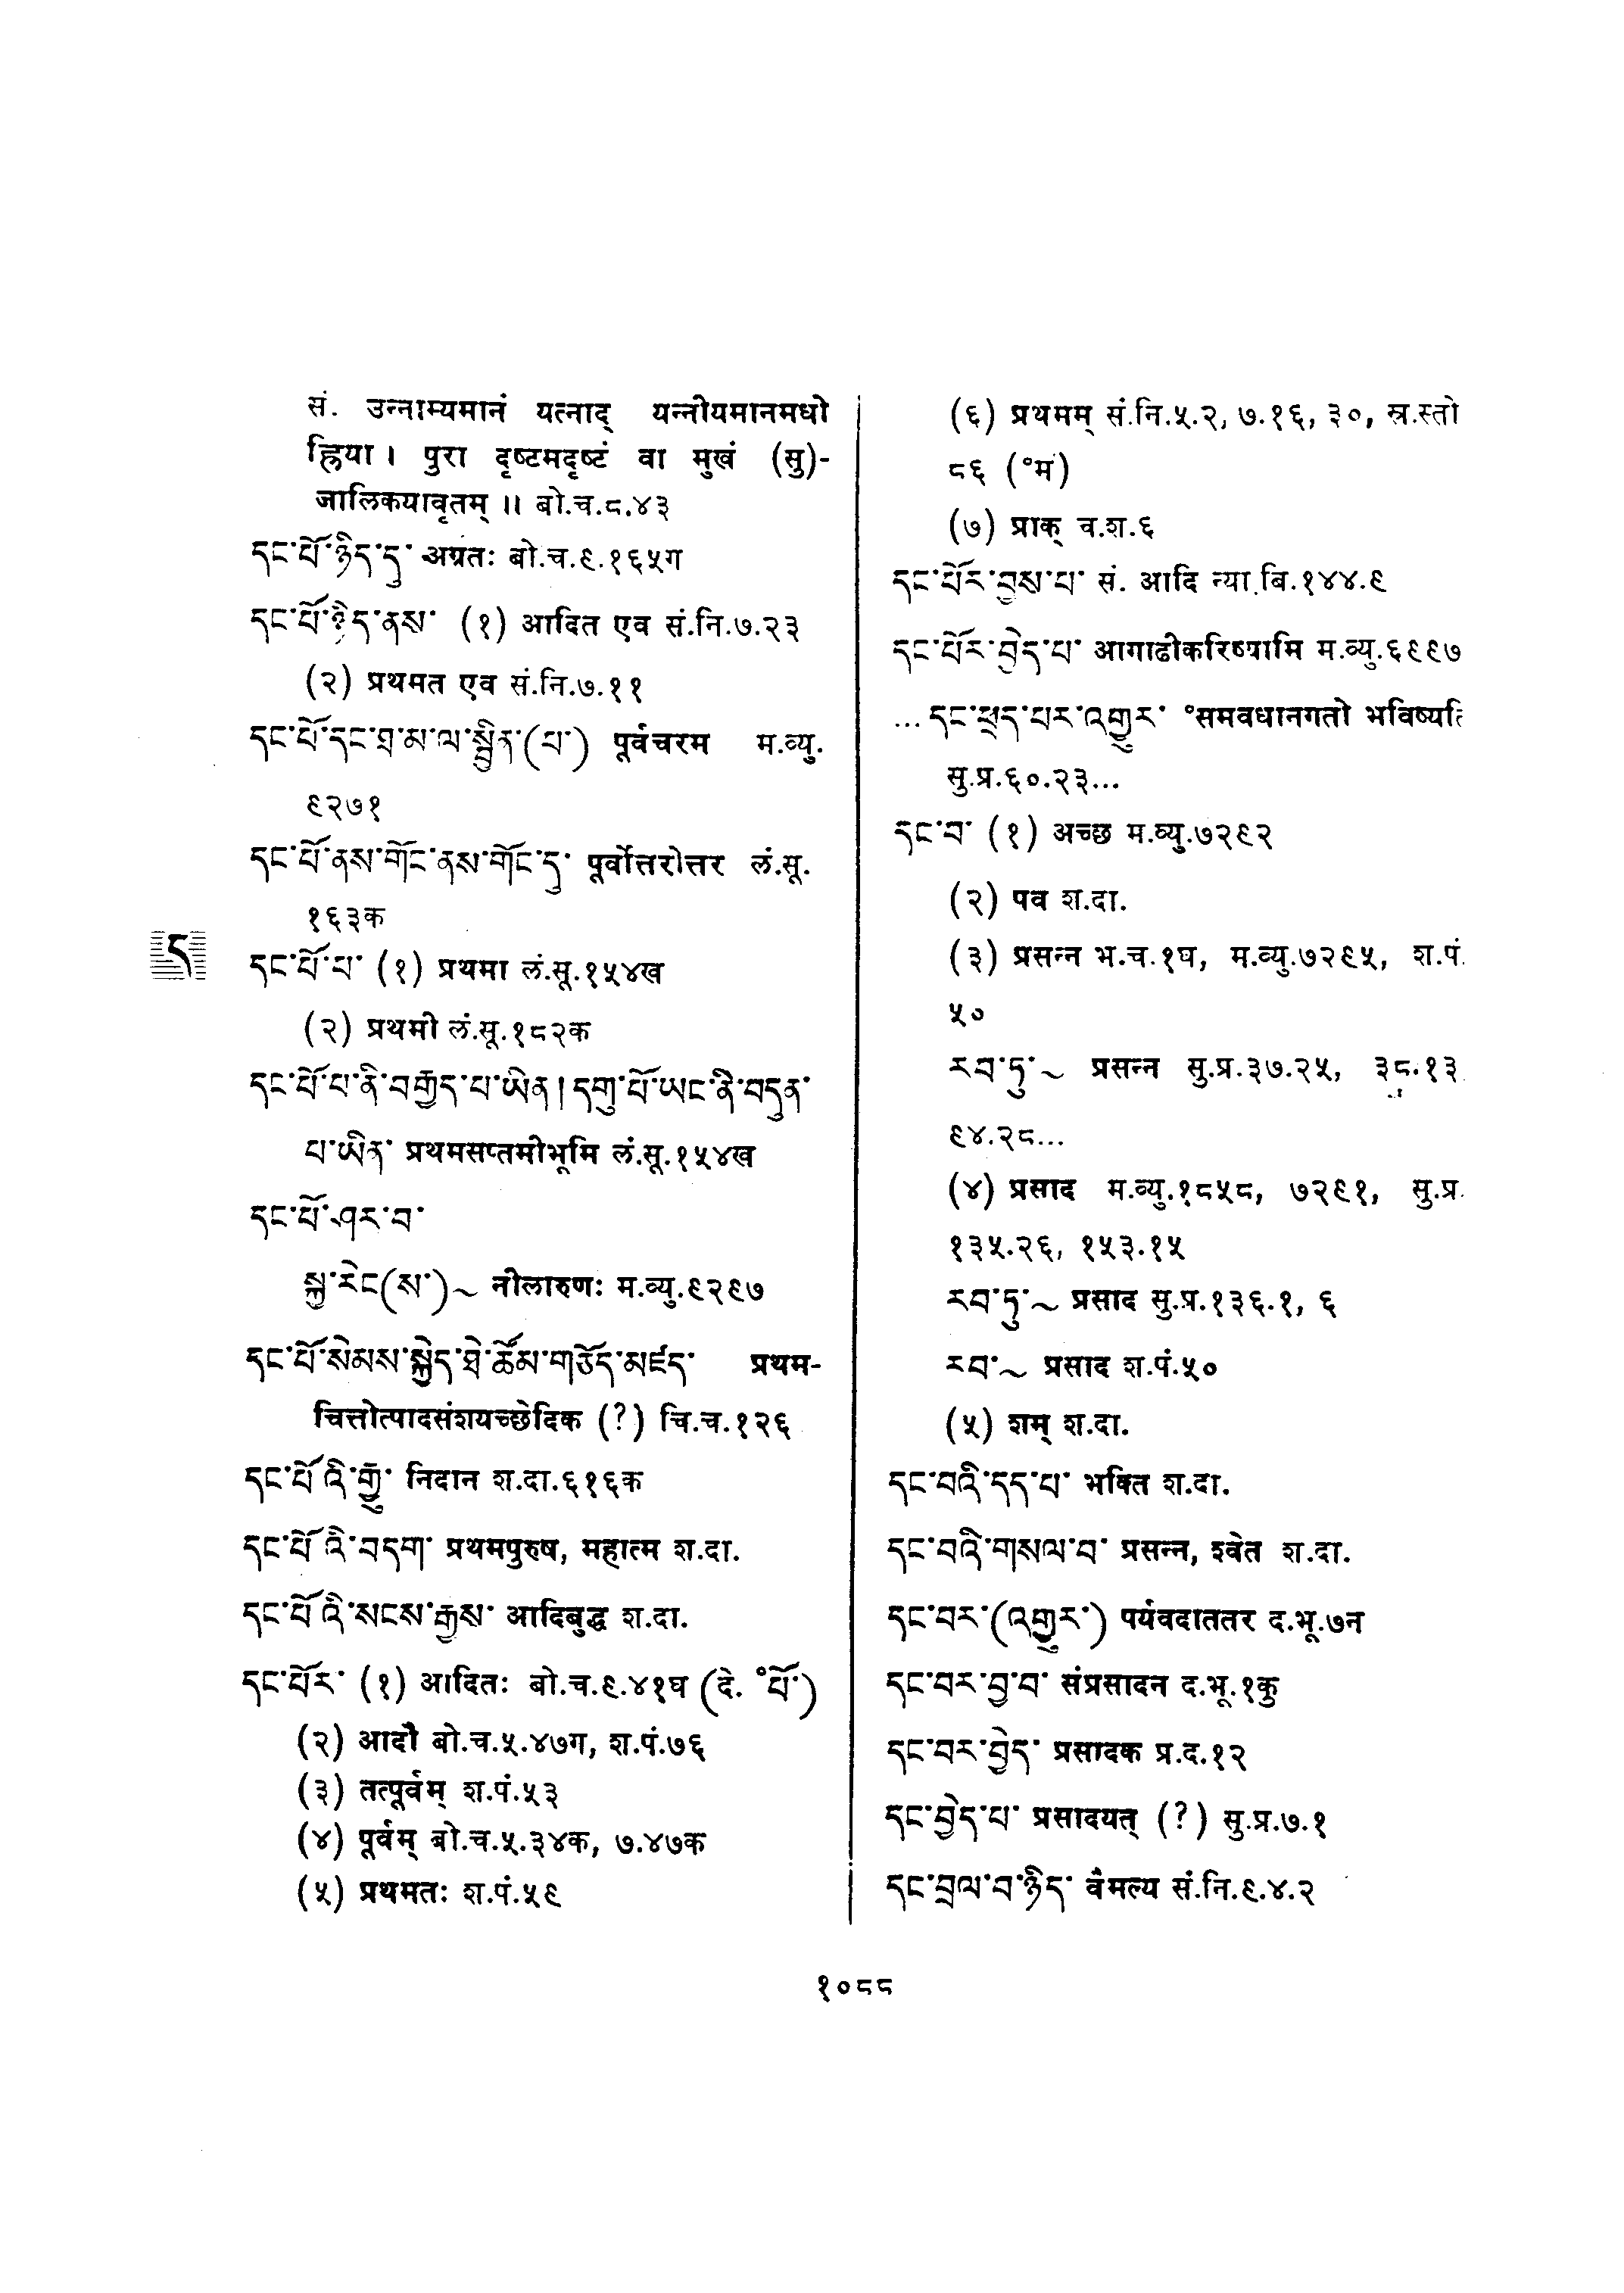 सं. उन्नाम्यमानं यत्नाद् यन्नीयमानमधो
ह्रिया। पुरा दृष्टमदृष्टं वा मुखं (सु)-
जालिकयावृतम् ॥ बो.च.८.४३
དང་པོ་ཉིད་དུ་ अग्रतः बो.च.९.१६५ग
དང་པོ་ཉིད་ནས་ (१) आदित एव सं.नि.७.२३
(२) प्रथमत एव सं.नि.७.११
དང་པོ་དང་ཐ་མ་ལ་སྦྱིན་(པ་) पूर्वचरम म.व्यु.
९२७१
དང་པོ་ནས་གོང་ནས་གོང་དུ་ पूर्वोत्तरोत्तर लं.सू.
१६३क
ད
དང་པོ་པ་ (१) प्रथमा लं.सू.१५४ख
(२) प्रथमी लं.सू.१८२क
དང་པོ་པ་ནི་བརྒྱད་པ་ཡིན།དགུ་པོ་ཡང་ནི་བདུན་
པ་ཡིན་ प्रथमसप्तमीभूमि लं.सू.१५४ख
དང་པོ་ཤར་བ་
སྐྱ་རེང(ས་)~ नीलारुणः म.व्यु.९२९७
དང་པོ་སེམས་སྐྱེད་ཐེ་ཚོམ་གཅོད་མཛད་ प्रथम-
चित्तोत्पादसंशयच्छेदिक (?) चि.च.१२६
དང་པོའི་རྒྱུ་ निदान श.दा.६१६क
དང་པོའི་བདག་ प्रथमपुरुष, महात्म श.दा.
དང་པོའི་སངས་རྒྱས་ आदिबुद्ध श.दा.
དང་པོར་ (१) आदितः बो.च.९.४१घ (दे. °པོ་)
(२) आदौ बो.च.५.४७ग, श.पं.७६
(३) तत्पूर्वम् श.पं.५३
(४) पूर्वम् बो.च.५.३४क, ७.४७क
(५) प्रथमतः श.पं.५९
(६) प्रथमम् सं.नि.५.२, ७.१६, ३०, स्र.स्तो
८६ (°मं)
(७) प्राक् व.श.६
དང་པོར་བྱས་པ་ सं. आदि न्या.बि.१४४.९
དང་པོར་བྱེད་པ་ आगाढीकरिष्यामि म.व्यु.६९९७
...དང་ཕྲད་པར་འགྱུར་ °समवधानगतो भविष्यति
सु.प्र.६०.२३...
དང་བ་ (१) अच्छ म.व्यु.७२९२
(२) पव श.दा.
(३) प्रसन्न भ.च.१घ, म.व्यु.७२९५, श.पं.
५०
རབ་ཏུ་~ प्रसन्न सु.प्र.३७.२५, ३८.१३
९४.२८...
(४) प्रसाद म.व्यु.१८५८, ७२९१, सु.प्र.
१३५.२६, १५३.१५
རབ་ཏུ་~ प्रसाद सु.प्र.१३६.१, ६
རབ་~ प्रसाद श.पं.५०
(५) शम् श.दा.
དང་བའི་དད་པ་ भक्ति श.दा.
དང་བའི་གསལ་བ་ प्रसन्न, श्वेत श.दा.
དང་བར་(འགྱུར་) पर्यवदाततर द.भू.७न
དང་བར་བྱ་བ་ संप्रसादन द.भू.१कु
དང་བར་བྱེད་ प्रसादक प्र.द.१२
དང་བྱེད་པ་ प्रसादयत् (?) सु.प्र.७.१
དང་བྲལ་བ་ཉིད་ वैमल्य सं.नि.९.४.२
१०८८